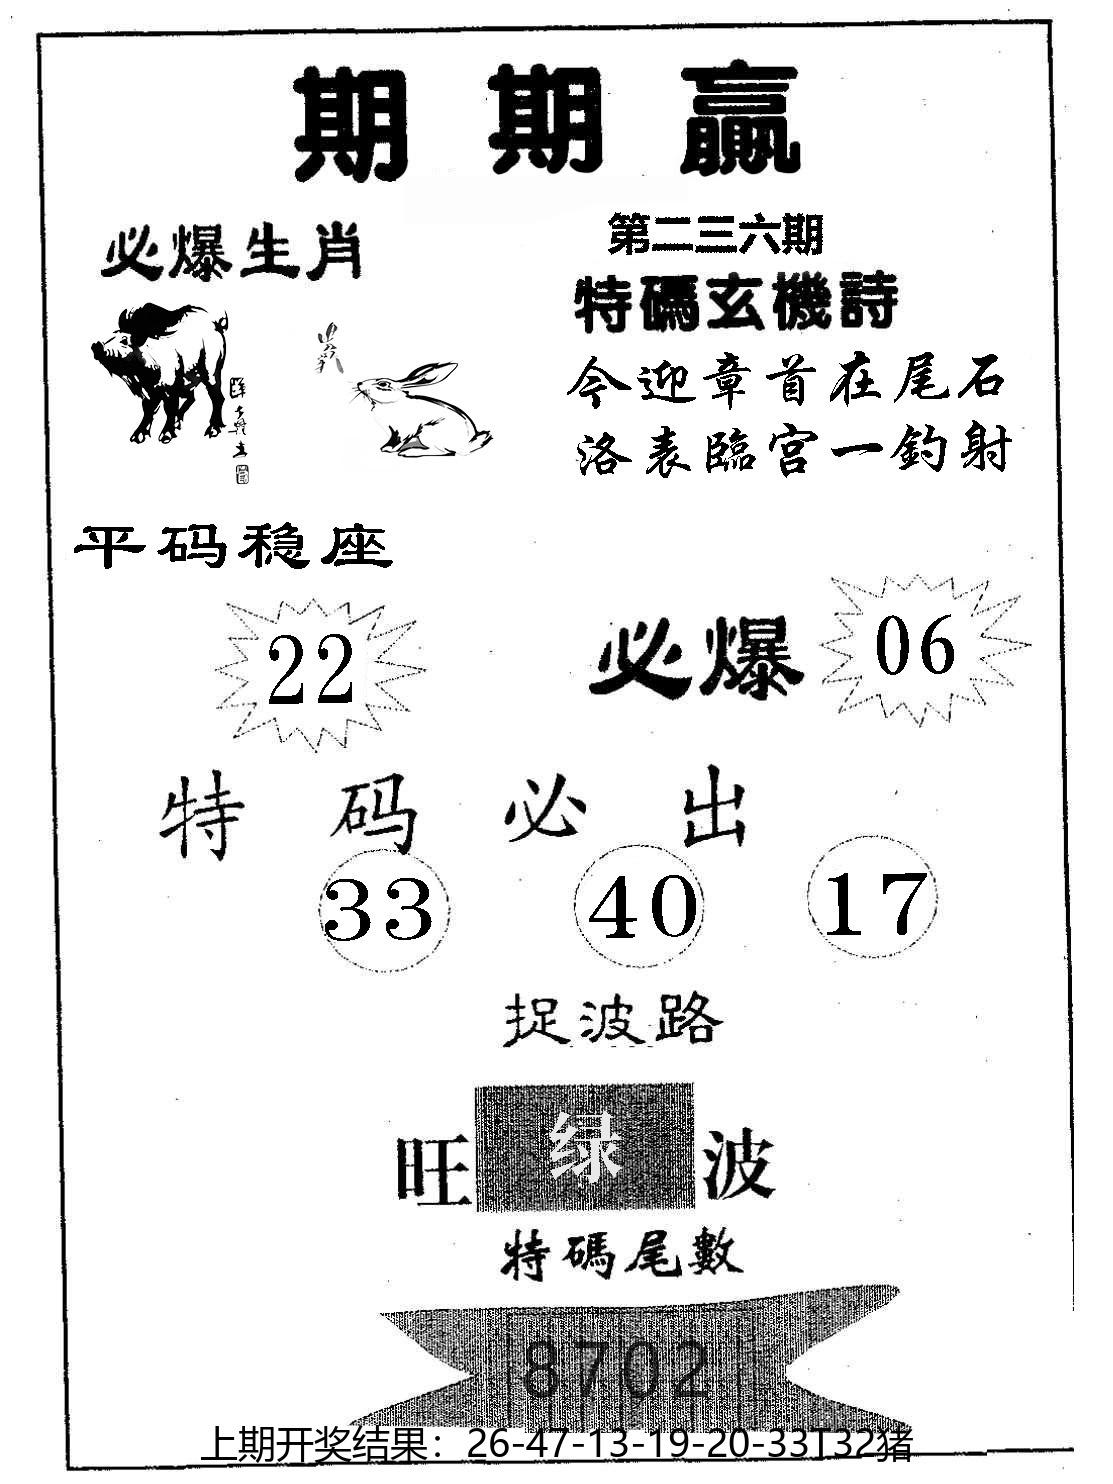 期期贏
必爆生肖
第二三六期
特碼玄機詩
今迎章首在尾石
洛表臨宮一釣射
平码稳座
22
必爆 06
特码必出
33 40 17
捉波路
旺 绿 波
特碼尾數
8702
上期开奖结果：26-47-13-19-20-33T32猪